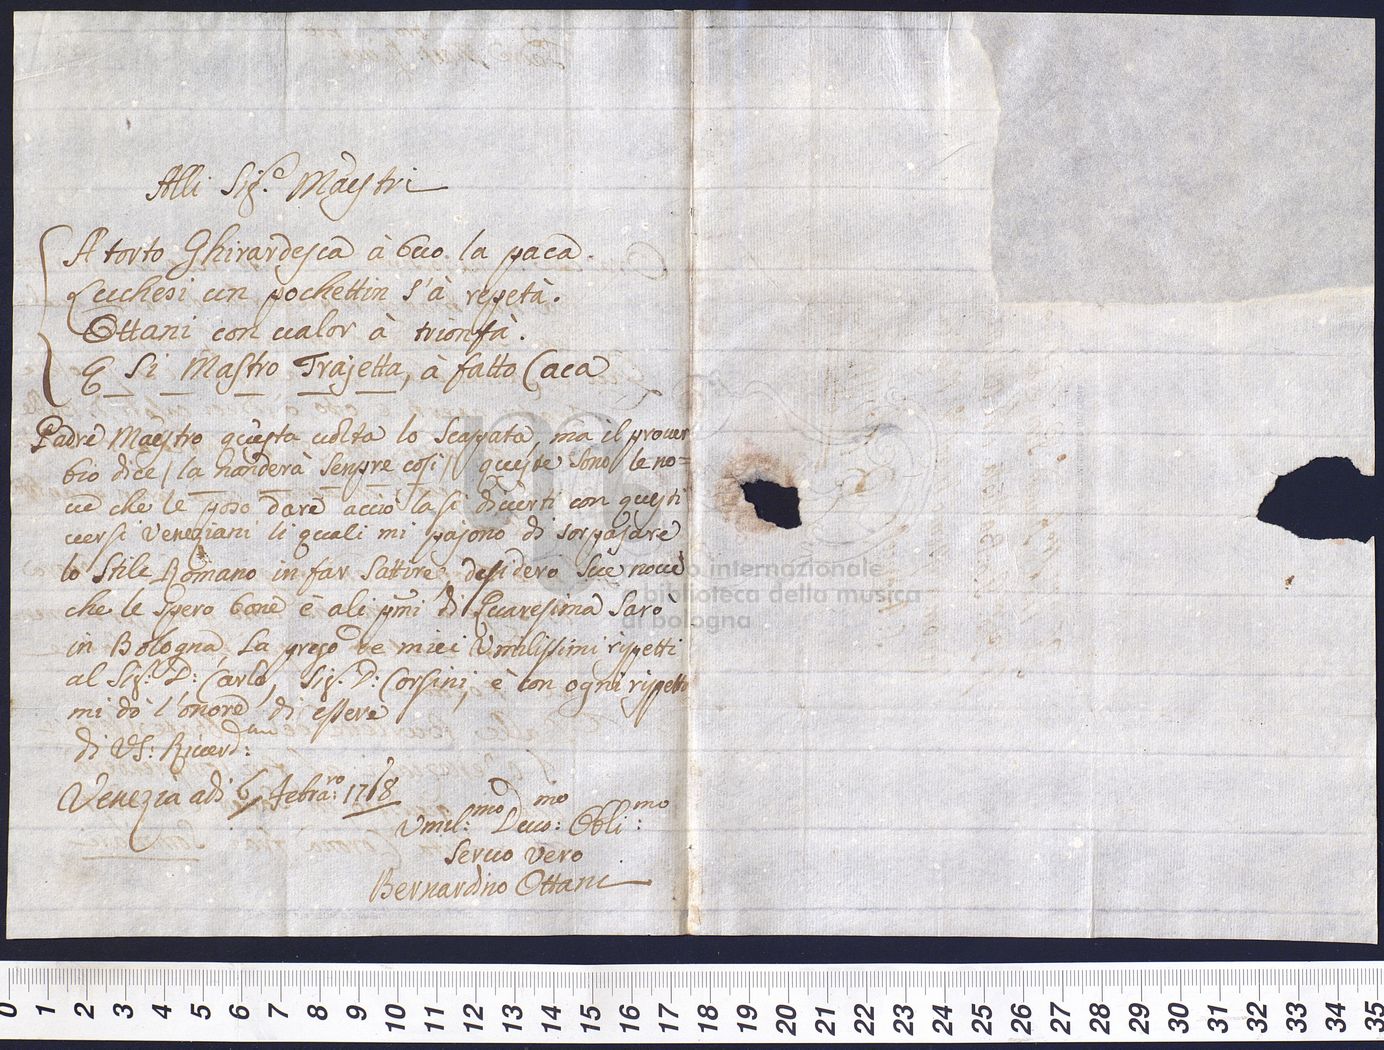 Alli Sig.ri Maestri
A torto Ghirardesca à buo la paca.
Luchesi un pochettin s'à repetà.
Ottani con ualor à trionfà.
E Si Mastro Trajetta, à fatto Caca
Padre Maestro questa uolta lo Scappata, ma il prouer
bio dice / la handerà senpre cosi / queste sono le no=
ue che le poso dare acciò la si diuerti con questi
uersi Veneziani li quali mi pajono di sorpasare
lo Stile Romano in far Sattire, desidero Sue noue
che le spero bone è ali pmi di Quaresima Sarò
in Bologna, La prego de miei Vmilissimi rispetti
al Sig.r D: Carlo, Sig. D: Corsini, è con ogni rispetto
mi dò l'onore di essere
di VS: Riuerd:ma
Venezia adi 6 Febra:ro 1768
Vmel:mo Deuo:mo Obli:mo
Seruo vero
Bernardino Ottani
internazionale
biblioteca della musica
di bologna
0 1 2 3 4 5 6 7 8 9 10 11 12 13 14 15 16 17 18 19 20 21 22 23 24 25 26 27 28 29 30 31 32 33 34 35